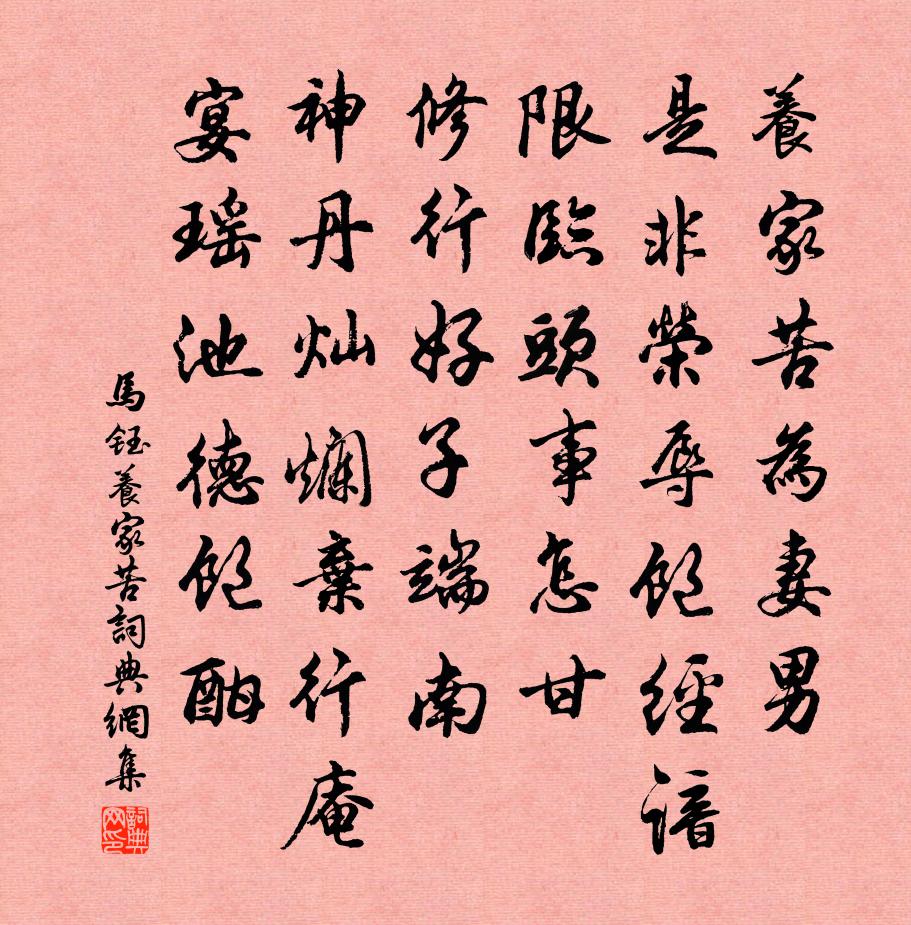 養家苦為妻男
是非榮辱飽經諳
限臨頭事怎甘
修行好子端南
神丹灿爛棄行庵
宴瑶池德飽酣
馬鈺養家苦詞典網集
詞典网印